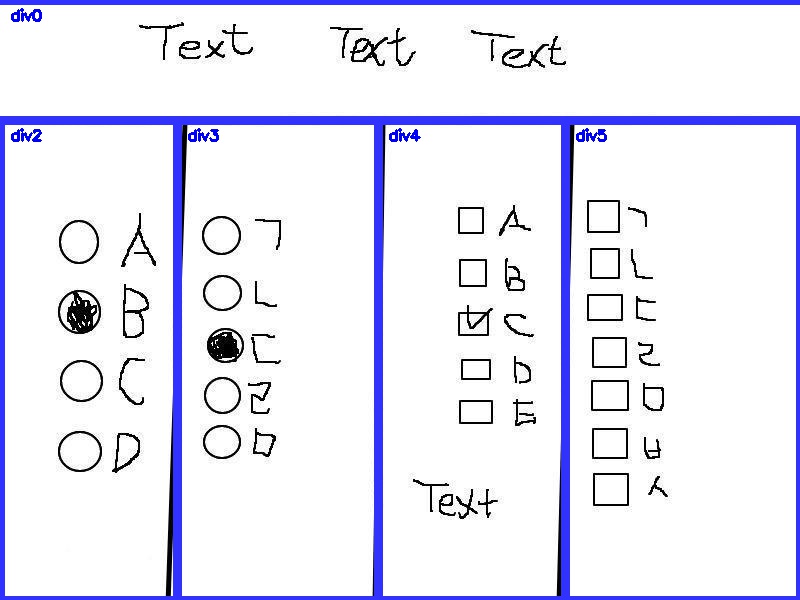 div0
Text Text Text
div2
A
B
C
D
div3
ㄱ
ㄴ
ㄷ
ㄹ
ㅁ
div4
A
B
C
D
E
Text
div5
ㄱ
ㄴ
ㄷ
ㄹ
ㅁ
ㅂ
ㅅ